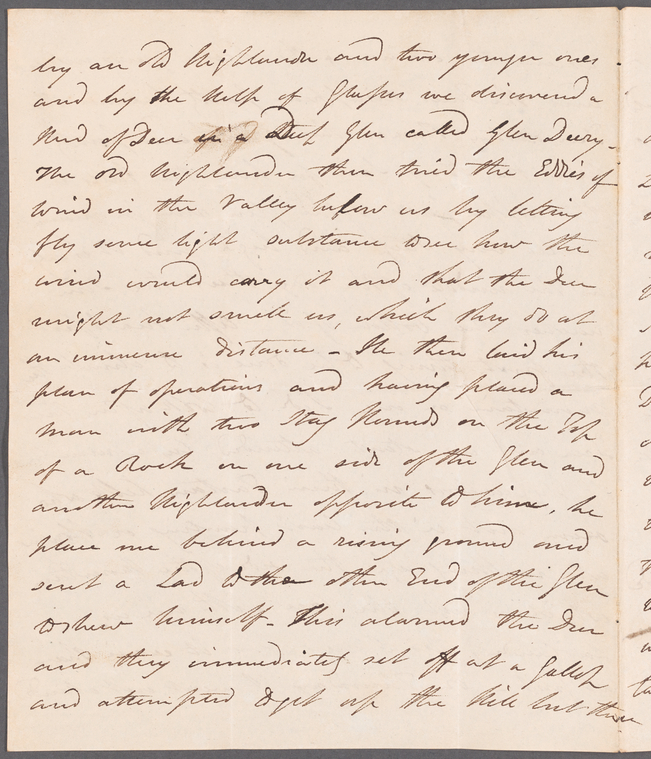 by an old Highlander and two younger ones
and by the help of Glasses we discovered a
Herd of Deer in a Deep Glen called Glen Deery-
The old Highlander then tried the Eddies of
wind in the Valley below us by letting
fly some light substance to see how the
wind would carry it and that the Deer
might not smell us, which they do at
an immense distance - He then laid his
plan of operations and having placed a
man with two Stag Hounds on the Top
of a Rock on one side of the Glen and
another Highlander opposite to him, he
place me behind a rising ground and
sent a Lad to the other End of the Glen
to shew himself - This alarmed the Deer
and they immediately set off at a Gallop
and attempted to get up the Hill but